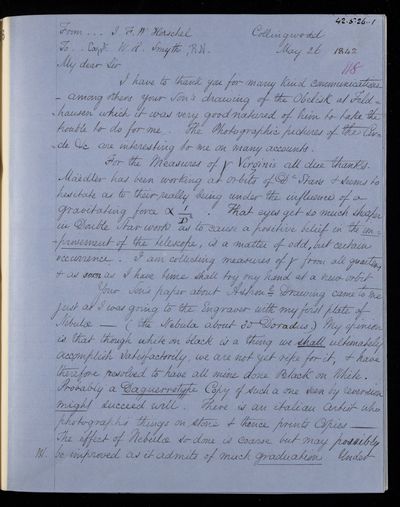 42-5-26-1
From ... J. F. W. Herschel Collingwood
To .. Capt. W. H. Smyth, R.N. May 26 1842
118
My dear Sir
I have to thank you for many kind communications
- among others your Son's drawing of the Obelisk at Feld-
-hausen which it was very good natured of him to take the
trouble to do for me. The Photographic pictures of the
are interesting to me on many accounts.
For the Measures of γ Virginis all due thanks.
Maedler has been working at orbits of Dble Stars & seems to
hesitate as to their really being under the influence of a
gravitating force ∝ 1/D². That eyes get so much sharper
in Double Star work as to cause a positive belief in the im-
-provement of the telescope, is a matter of odd, but certain
occurrence. I am collecting measures of γ from all quarters
& as soon as I have time shall try my hand at a new orbit
Your Son's paper about Astronl Drawing came to me
just as I was going to the Engraver with my first plate of
Nebulae — (the Nebula about 30 Doradus.) My opinion
is that though white on black is a thing we shall ultimately
accomplish satisfactorily, we are not yet ripe for it, & have
therefore resolved to have all mine done Black on White.
Probably a Daguerrotype Copy of such a one seen by
might succeed well. There is an italian artist who
photographs things on stone & thence prints Copies —
The effect of Nebulae so done is coarse but may possibly
be improved as it admits of much graduation. Under